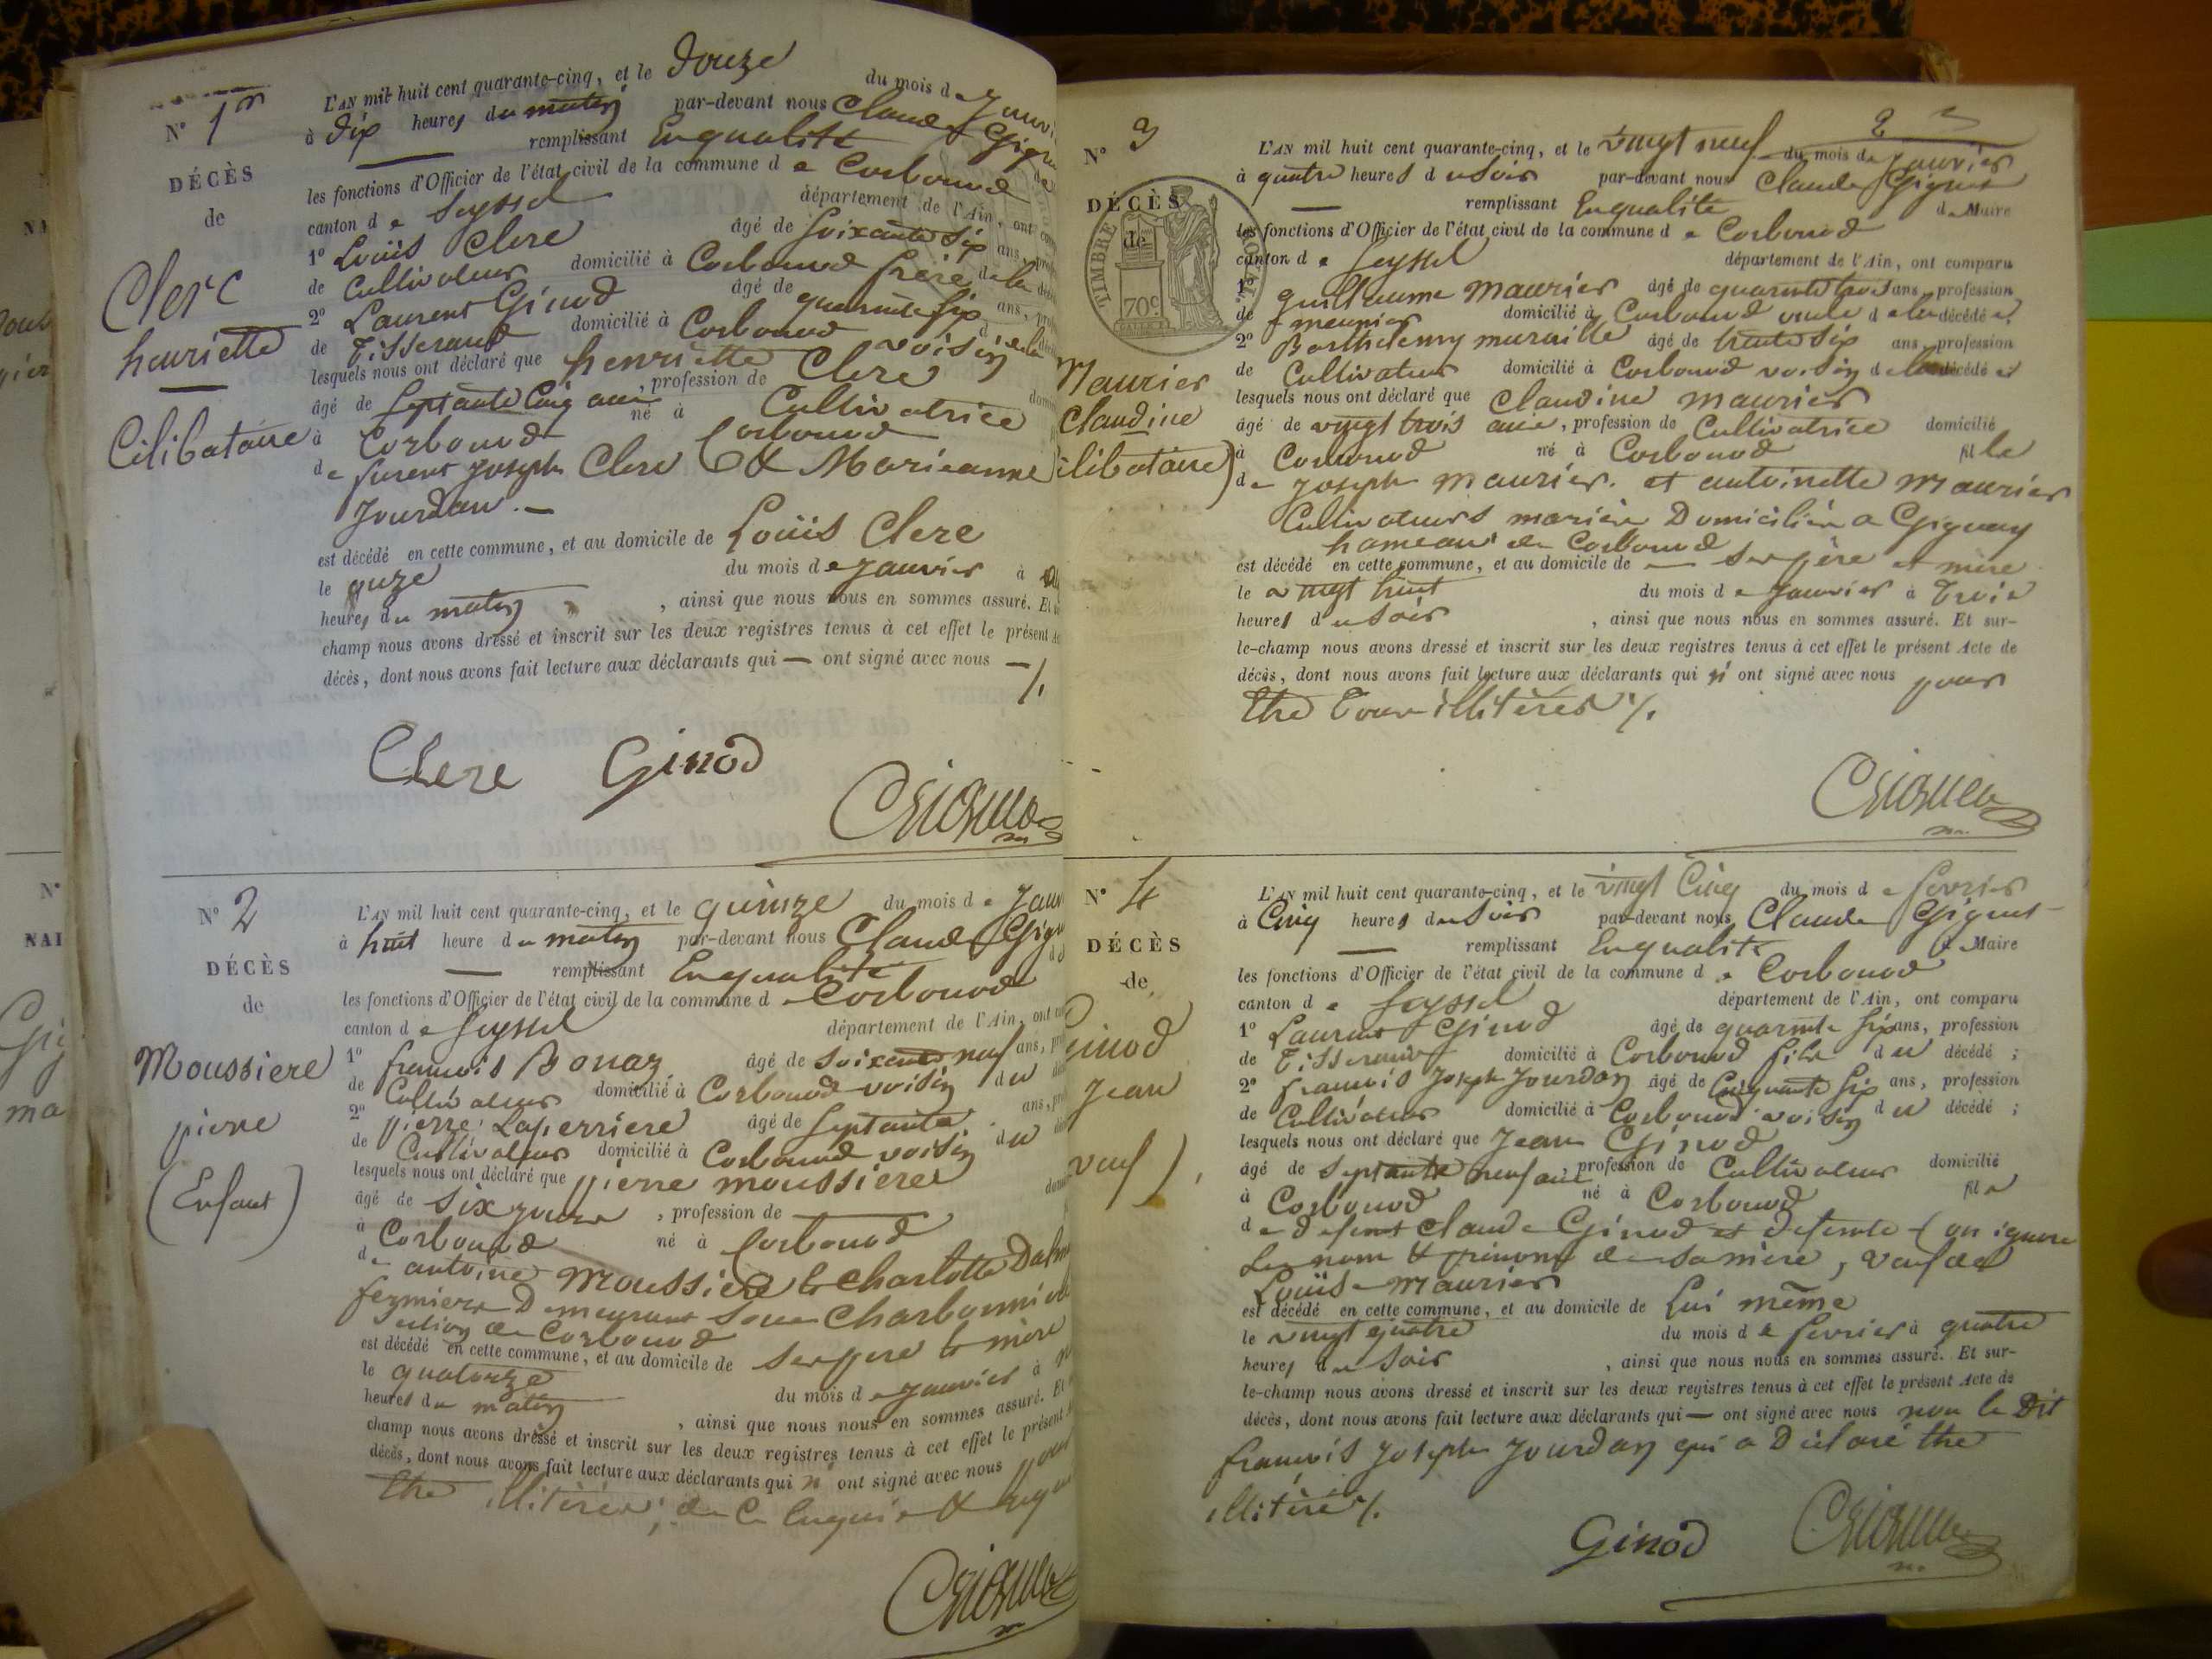 N° 1er
DÉCÈS
de
Clerc
henriette
Célibataire
L'AN mil huit cent quarante-cinq, et le douze du mois de
à dix heures du matin par-devant nous Claude
remplissant En qualité
les fonctions d'Officier de l'état civil de la commune de Corbonod
canton de Seyssel département de l'Ain, ont
1° Louis Clerc âgé de soixante six ans,
de Cultivateur domicilié à Corbonod frère de la
2° Laurent Ginod âgé de quarante six ans,
de Tisserand domicilié à Corbonod voisin de la
lesquels nous ont déclaré que henriette Clerc
âgé de septante cinq ans, profession de Cultivatrice
à Corbonod né à Corbonod
de furent Joseph Clerc & Marieanne
Jourdan. —
est décédé en cette commune, et au domicile de Louis Clerc
le onze du mois de janvier à
heures du matin, ainsi que nous nous en sommes assuré. Et
champ nous avons dressé et inscrit sur les deux registres tenus à cet effet le présent
décès, dont nous avons fait lecture aux déclarants qui — ont signé avec nous — /.
Clerc Ginod
N° 2
DÉCÈS
de
Moussiere
pierre
(Enfant)
L'AN mil huit cent quarante-cinq, et le quinze du mois de
à huit heure du matin par-devant nous Claude
remplissant En qualité
les fonctions d'Officier de l'état civil de la commune de Corbonod
canton de Seyssel département de l'Ain, ont
1° françois Bonaz âgé de soixante neuf ans,
de Cultivateur domicilié à Corbonod voisin du
2° pierre Laperriere âgé de septante ans,
de Cultivateur domicilié à Corbonod voisin du
lesquels nous ont déclaré que pierre moussiere
âgé de six jours, profession de —
à Corbonod né à Corbonod
de antoine Moussiere & Charlotte
fermiers Demeurant sous
section de Corbonod
est décédé en cette commune, et au domicile de ses pere & mère
le quatorze du mois de janvier à
heures du matin, ainsi que nous nous en sommes assuré. Et
champ nous avons dressé et inscrit sur les deux registres tenus à cet effet le présent
décès, dont nous avons fait lecture aux déclarants qui n'ont signé avec nous pour
être illitérés, de ce Enquis &
N° 3
DÉCÈS
de
TIMBRE ROYAL
70c
Maurier
Claudine
2
L'AN mil huit cent quarante-cinq, et le vingt neuf du mois de janvier
à quatre heures du soir par-devant nous Claude Gignet
remplissant En qualité de Maire
les fonctions d'Officier de l'état civil de la commune de Corbonod
canton de Seyssel département de l'Ain, ont comparu
1° guillaume maurier âgé de quarante trois ans, profession
de meunier domicilié à Corbonod oncle de la décédée,
2° Barthelemy muraille âgé de trente six ans, profession
de Cultivateur domicilié à Corbonod voisin de la décédée
lesquels nous ont déclaré que Claudine maurier
âgé de vingt trois ans, profession de Cultivatrice domicilié
à Corbonod né à Corbonod fille
de joseph maurier. et antoinette maurier
Cultivateurs mariés Domiciliés a Gignay
hameau de Corbonod
est décédé en cette commune, et au domicile de — ses père et mère
le vingt huit du mois de janvier à Trois
heures du soir, ainsi que nous nous en sommes assuré. Et sur-
le-champ nous avons dressé et inscrit sur les deux registres tenus à cet effet le présent Acte de
décès, dont nous avons fait lecture aux déclarants qui n'ont signé avec nous pour
être Tous illitérés /.
N° 4
DÉCÈS
de
Ginod
Jean
veuf
L'AN mil huit cent quarante-cinq, et le vingt Cinq du mois de fevrier
à Cinq heures du soir par-devant nous Claude Gignet
remplissant En qualité de Maire
les fonctions d'Officier de l'état civil de la commune de Corbonod
canton de Seyssel département de l'Ain, ont comparu
1° Laurent Ginod âgé de quarante six ans, profession
de Tisserand domicilié à Corbonod fils du décédé ;
2° françois Joseph Jourdan âgé de Cinquante six ans, profession
de Cultivateur domicilié à Corbonod voisin du décédé ;
lesquels nous ont déclaré que Jean Ginod
âgé de septante neuf ans profession de Cultivateur domicilié
à Corbonod né à Corbonod fils
de Defunt Claude Ginod et Defunte (on ignore
Les nom & prénoms de sa mère, veuf de
Louise Maurier
est décédé en cette commune, et au domicile de Lui même
le vingt quatre du mois de fevrier à quatre
heures du soir, ainsi que nous nous en sommes assuré. Et sur-
le-champ nous avons dressé et inscrit sur les deux registres tenus à cet effet le présent Acte de
décès, dont nous avons fait lecture aux déclarants qui — ont signé avec nous non le Dit
françois Joseph Jourdan qui a Déclaré être
illitéré /.
Ginod